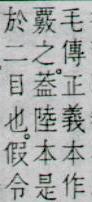 毛傳正義本作
覈之。葢陸本是
於二目也。假令